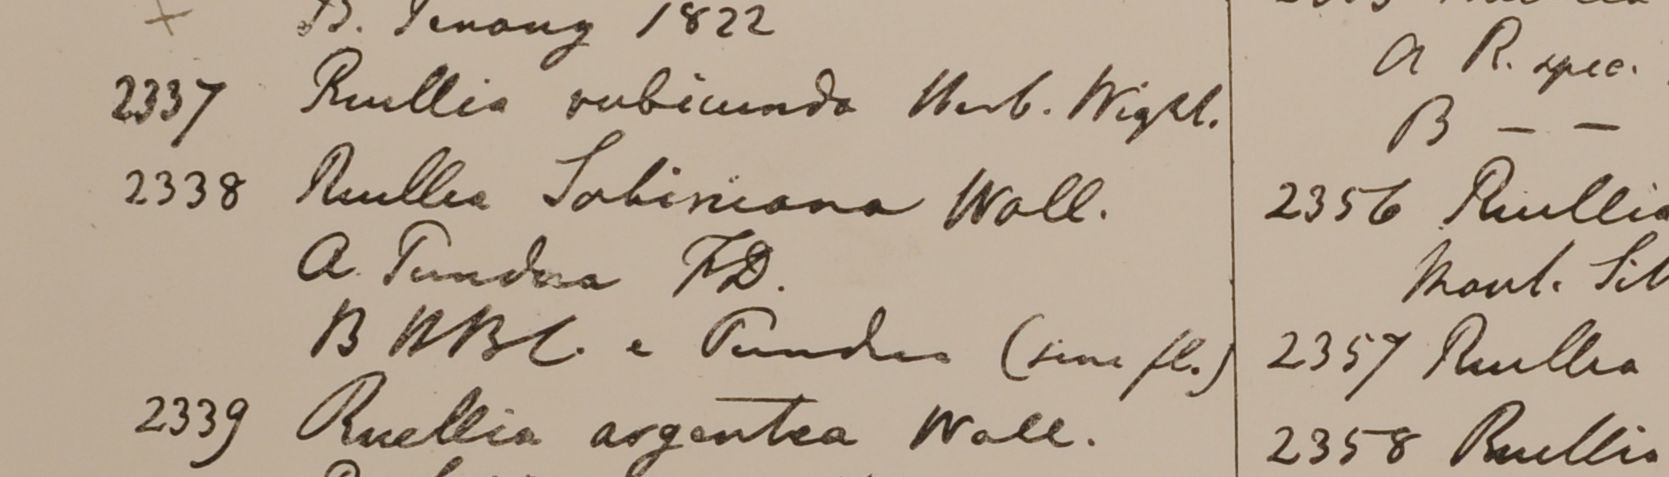 B. Penang 1822
2337 Ruellia rubicunda Herb. Wight.
2338 Ruellia Sabiniana Wall.
A. Pundua FD.
B HBC. e Pundua (sine fl.)
2339 Ruellia argentea Wall.
A R. spec.
B — —
2356 Ruellia
Mont. Sil
2357 Ruellia
2358 Ruellia